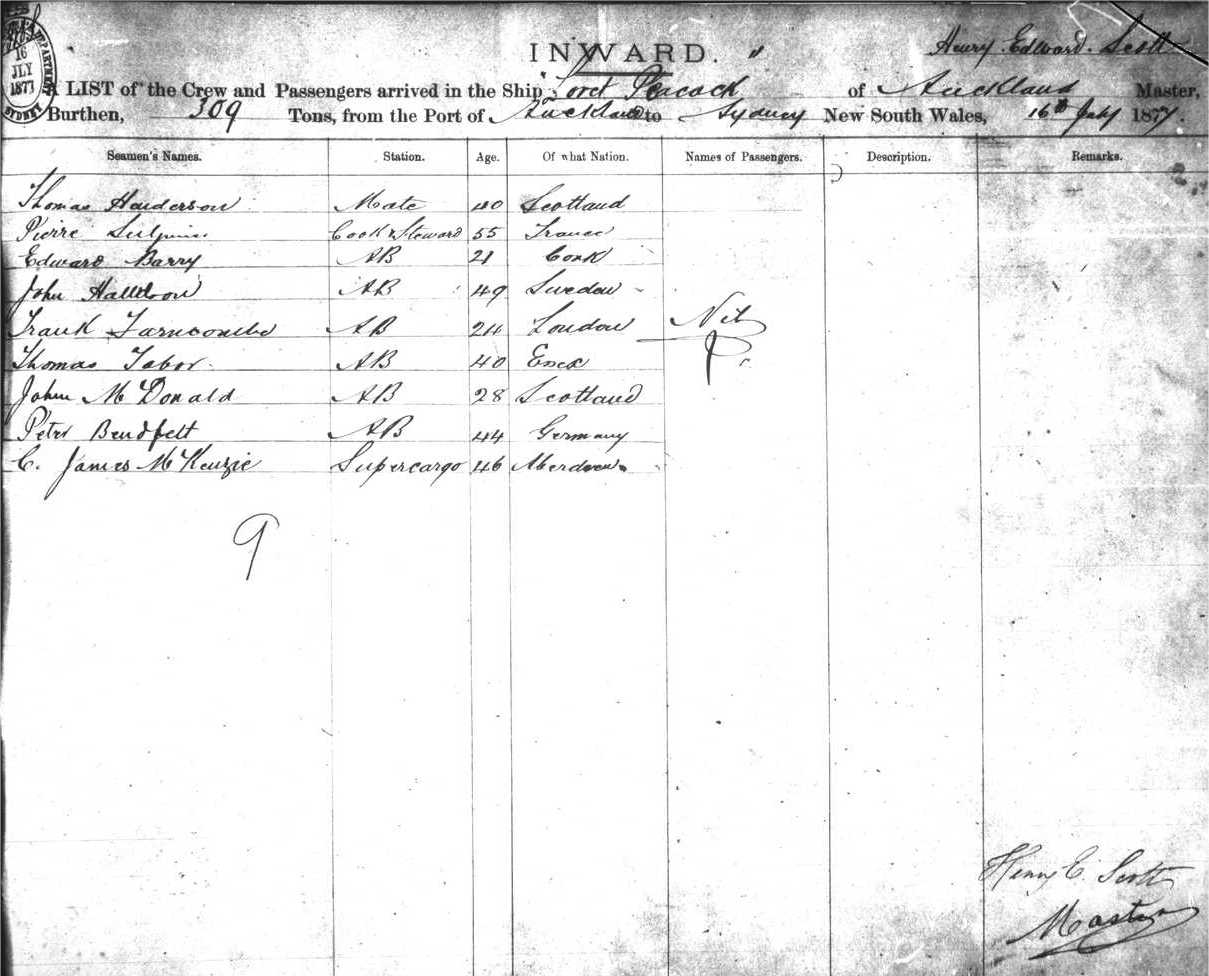 16
JLY
1877
SYDNEY
INWARD. "
Henry Edward Scott
A LIST of the Crew and Passengers arrived in the Ship Peacock of Auckland Master,
Burthen, 309 Tons, from the Port of Auckland to Sydney New South Wales, 16th July 1877.
Seamen's Names. Station. Age. Of what Nation. Names of Passengers. Description. Remarks.
Thomas Henderson Mate 40 Scotland
Pierre Cook & Steward 55 France
Edward Barry AB 21 Cork
John AB 49 Sweden
Frank Farncombe AB 24 London Nil
Thomas Tabor AB 40 Essex
John McDonald AB 28 Scotland
Peter Bendfelt AB 44 Germany
C. James McKenzie Supercargo 46 Aberdeen
9
Henry E. Scott
Master